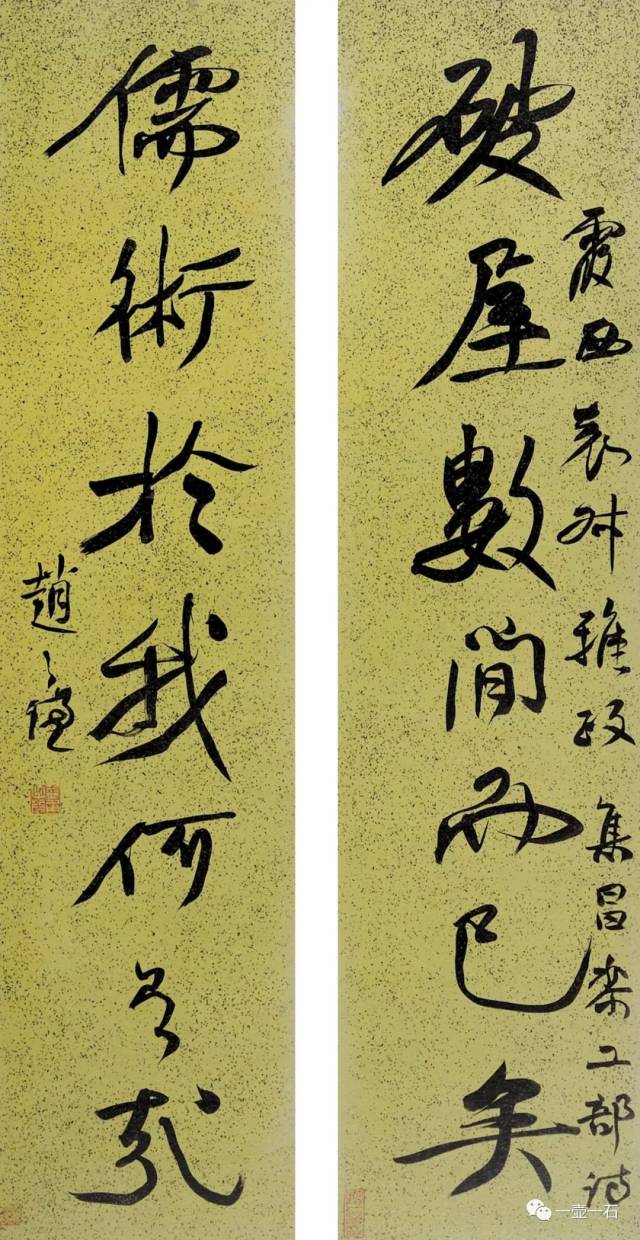 破屋數間而已矣
霞西表叔雅政 集昌黎工部詩
儒術於我何有哉
趙之謙
一壶一石